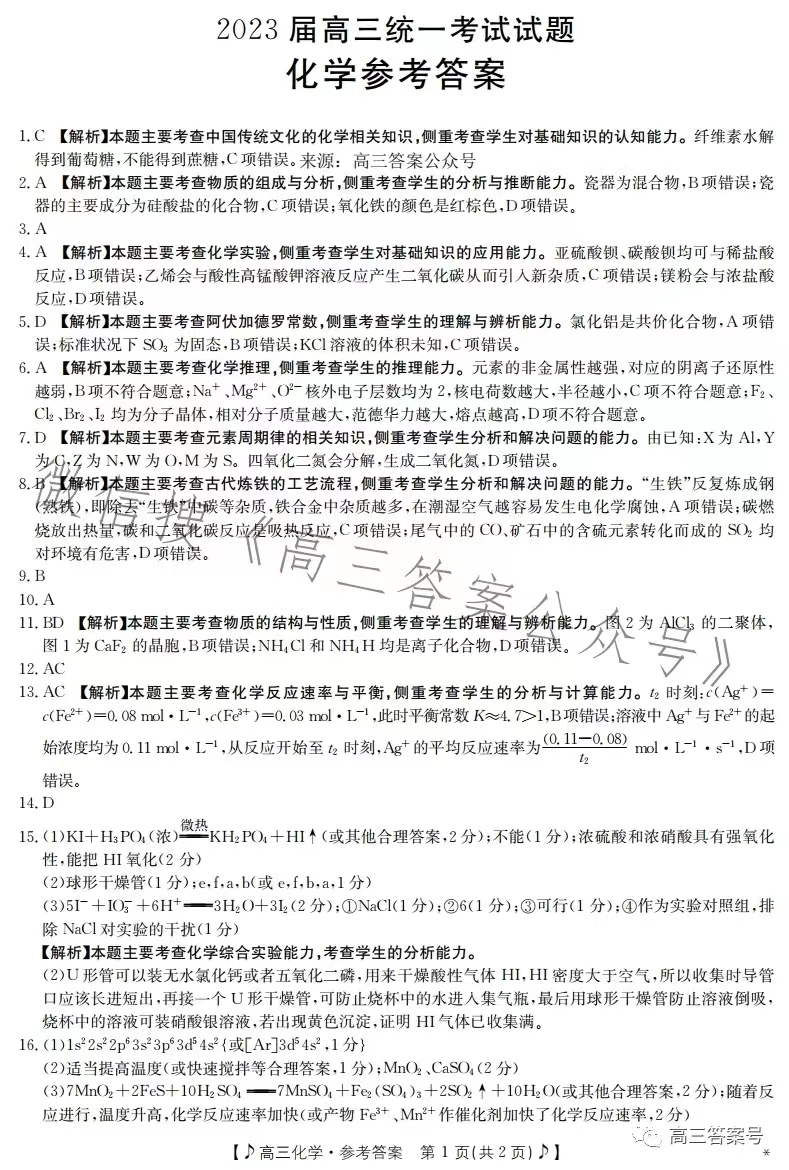 2023 届高三统一考试试题
化学参考答案
1. C 【解析】本题主要考查中国传统文化的化学相关知识,侧重考查学生对基础知识的认知能力。纤维素水解
得到葡萄糖,不能得到蔗糖,C项错误。来源：高三答案公众号
2. A 【解析】本题主要考查物质的组成与分析,侧重考查学生的分析与推断能力。瓷器为混合物,B项错误;瓷
器的主要成分为硅酸盐的化合物,C项错误;氧化铁的颜色是红棕色,D项错误。
3. A
4. A 【解析】本题主要考查化学实验,侧重考查学生对基础知识的应用能力。亚硫酸钡、碳酸钡均可与稀盐酸
反应,B项错误;乙烯会与酸性高锰酸钾溶液反应产生二氧化碳从而引入新杂质,C项错误;镁粉会与浓盐酸
反应,D项错误。
5. D 【解析】本题主要考查阿伏加德罗常数,侧重考查学生的理解与辨析能力。氯化铝是共价化合物,A项错
误;标准状况下 SO₃ 为固态,B项错误;KCl溶液的体积未知,C项错误。
6. A 【解析】本题主要考查化学推理,侧重考查学生的推理能力。元素的非金属性越强,对应的阴离子还原性
越弱,B项不符合题意;Na⁺、Mg²⁺、O²⁻核外电子层数均为2,核电荷数越大,半径越小,C项不符合题意;F₂、
Cl₂、Br₂、I₂ 均为分子晶体,相对分子质量越大,范德华力越大,熔点越高,D项不符合题意。
7. D 【解析】本题主要考查元素周期律的相关知识,侧重考查学生分析和解决问题的能力。由已知:X为Al,Y
为C,Z为N,W为O,M为S。四氧化二氮会分解,生成二氧化氮,D项错误。
8. B 【解析】本题主要考查古代炼铁的工艺流程,侧重考查学生分析和解决问题的能力。“生铁”反复炼成钢
(熟铁),即除去“生铁”中碳等杂质,铁合金中杂质越多,在潮湿空气越容易发生电化学腐蚀,A项错误;碳燃
烧放出热量,碳和二氧化碳反应是吸热反应,C项错误;尾气中的CO、矿石中的含硫元素转化而成的SO₂均
对环境有危害,D项错误。
9. B
10. A
11. BD 【解析】本题主要考查物质的结构与性质,侧重考查学生的理解与辨析能力。图2为AlCl₃的二聚体,
图1为CaF₂的晶胞,B项错误;NH₄Cl和NH₄H均是离子化合物,D项错误。
12. AC
13. AC 【解析】本题主要考查化学反应速率与平衡,侧重考查学生的分析与计算能力。t₂ 时刻:c(Ag⁺)=
c(Fe²⁺)=0.08 mol·L⁻¹,c(Fe³⁺)=0.03 mol·L⁻¹,此时平衡常数 K≈4.7>1,B项错误;溶液中Ag⁺与Fe²⁺的起
始浓度均为0.11 mol·L⁻¹,从反应开始至 t₂ 时刻,Ag⁺的平均反应速率为(0.11−0.08)/t₂ mol·L⁻¹·s⁻¹,D项
错误。
14. D
15. (1)KI+H₃PO₄(浓)══微热══KH₂PO₄+HI↑(或其他合理答案,2分);不能(1分);浓硫酸和浓硝酸具有强氧化
性,能把HI氧化(2分)
(2)球形干燥管(1分);e,f,a,b(或e,f,b,a,1分)
(3)5I⁻+IO₃⁻+6H⁺══3H₂O+3I₂(2分);①NaCl(1分);②6(1分);③可行(1分);④作为实验对照组,排
除NaCl对实验的干扰(1分)
【解析】本题主要考查化学综合实验能力,考查学生的分析能力。
(2)U形管可以装无水氯化钙或者五氧化二磷,用来干燥酸性气体HI,HI密度大于空气,所以收集时导管
口应该长进短出,再接一个U形干燥管,可防止烧杯中的水进入集气瓶,最后用球形干燥管防止溶液倒吸,
烧杯中的溶液可装硝酸银溶液,若出现黄色沉淀,证明HI气体已收集满。
16. (1)1s²2s²2p⁶3s²3p⁶3d⁵4s²{或[Ar]3d⁵4s²,1分}
(2)适当提高温度(或快速搅拌等合理答案,1分);MnO₂、CaSO₄(2分)
(3)7MnO₂+2FeS+10H₂SO₄══7MnSO₄+Fe₂(SO₄)₃+2SO₂↑+10H₂O(或其他合理答案,2分);随着反
应进行,温度升高,化学反应速率加快(或产物Fe³⁺、Mn²⁺作催化剂加快了化学反应速率,2分)
微信搜《高三答案公众号》
高三答案号
【♪高三化学·参考答案 第1页(共2页)♪】 *